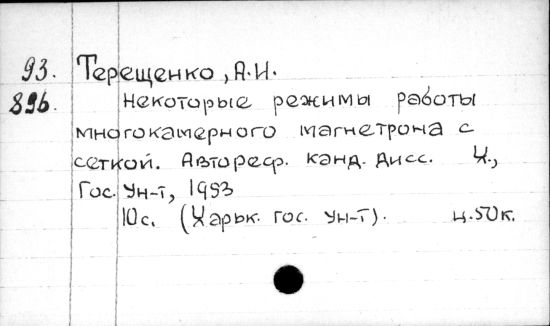 93. Терещенко, А.И.
896. Некоторые режимы работы
многокамерного магнетрона с
сеткой. Автореф. канд. дисс. Х.,
Гос. Ун-т, 1953
10 с. (Харьк. гос. ун-т). ц. 50 к.